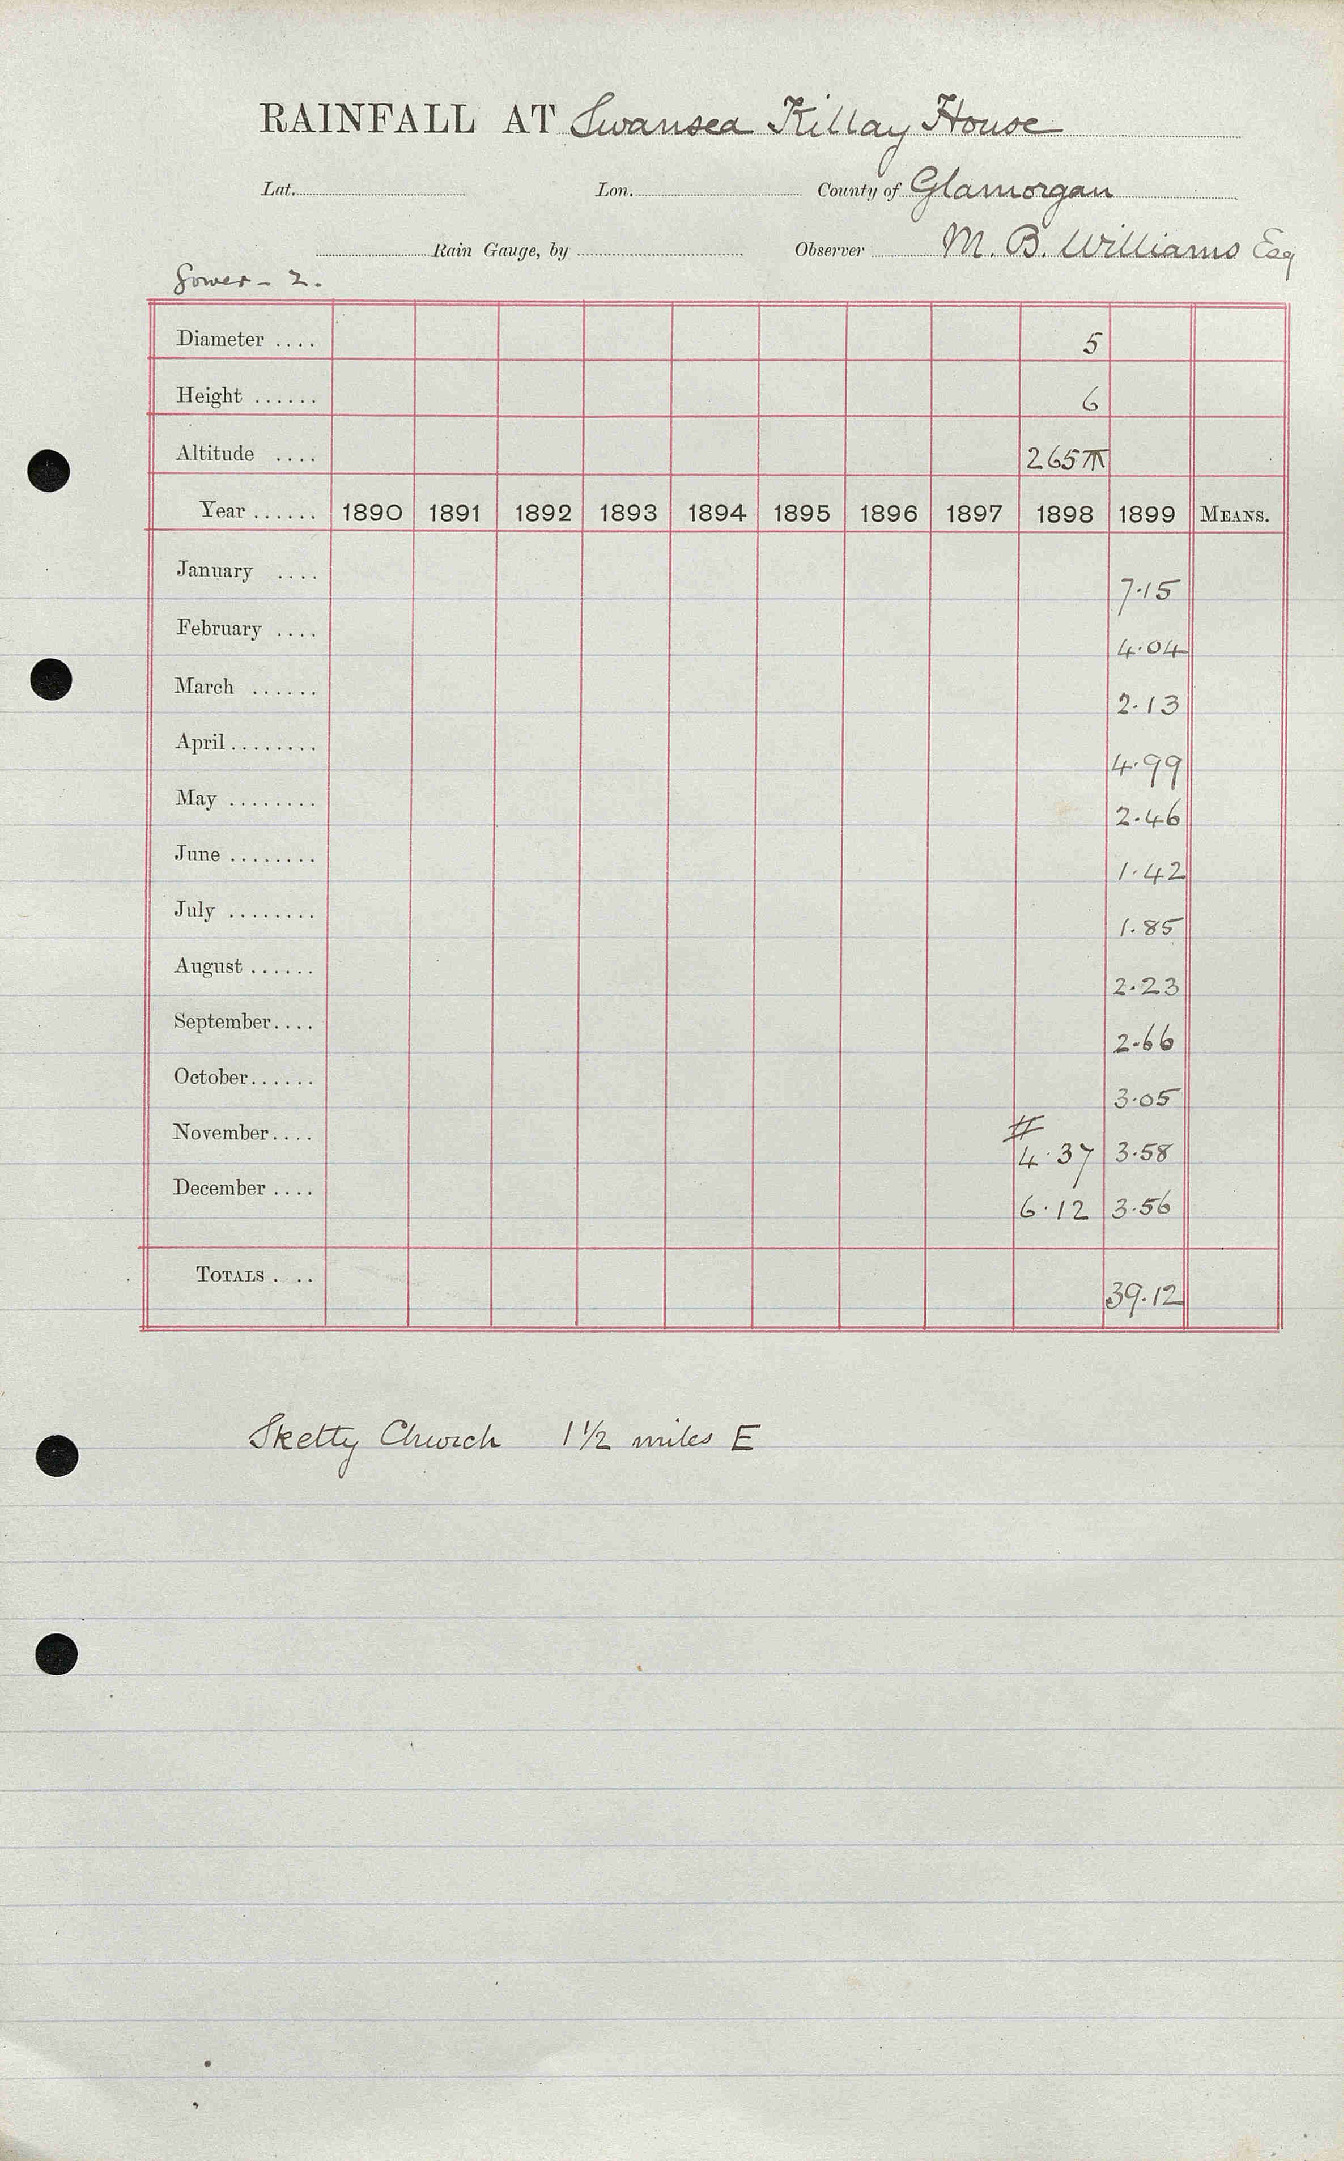 RAINFALL AT Swansea Killay House
Lat. Lon. County of Glamorgan
Rain Gauge, by Observer M. B. Williams Esq
Gower - 2.
Diameter .... 5
Height ...... 6
Altitude .... 265
Year ...... 1890 1891 1892 1893 1894 1895 1896 1897 1898 1899 MEANS.
January .... 7.15
February .... 4.04
March ...... 2.13
April ........ 4.99
May ........ 2.46
June ........ 1.42
July ........ 1.85
August ...... 2.23
September.... 2.66
October...... 3.05
November.... # 4.37 3.58
December .... 6.12 3.56
TOTALS . .. 39.12
Sketty Church 1 1/2 miles E